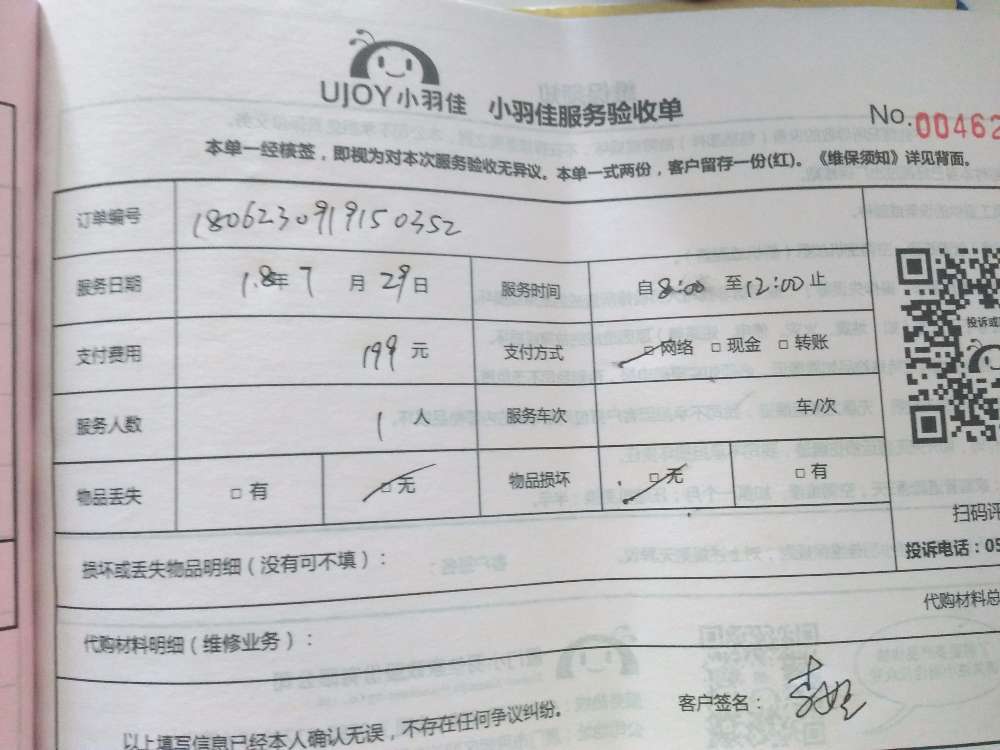 UJOY小羽佳 小羽佳服务验收单
No.00462
本单一经核签，即视为对本次服务验收无异议。本单一式两份，客户留存一份(红)。《维保须知》详见背面。
订单编号 1806230919150352
服务日期 18年 7 月 29 日 服务时间 自 8:00 至 12:00 止
投诉或
支付费用 199 元 支付方式 □ 网络 □ 现金 □ 转账
服务人数 1 人 服务车次 车/次
物品丢失 □ 有 □ 无 物品损坏 □ 无 □ 有
扫码评
投诉电话：05
损坏或丢失物品明细（没有可不填）：
代购材料总
代购材料明细（维修业务）：
客户签名：
以上填写信息已经本人确认无误，不存在任何争议纠纷。